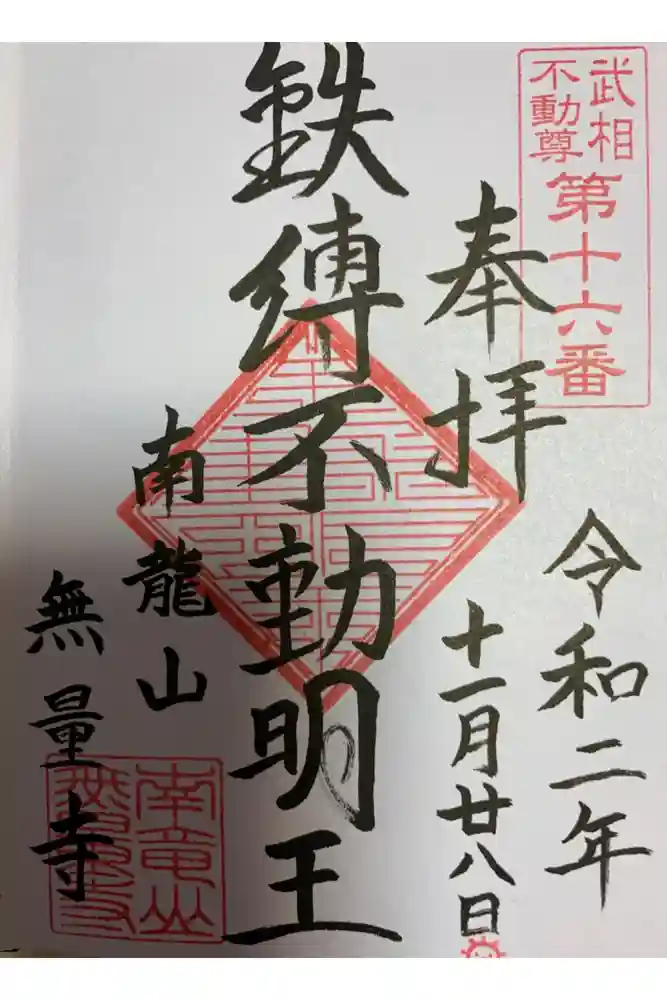 武相
不動尊
第十六番
奉拝
令和二年
十一月廿八日
鉄縛不動明王
南龍山
無量寺
南竜山